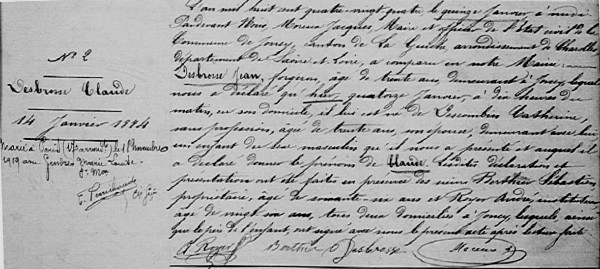 N° 2
Desbrosse Claude
14 Janvier 1884
Marié à Paris
1919 avec
L'an mil huit cent quatre-vingt quatre, le quinze Janvier, à midi
Pardevant Nous, Moreau Jacques, Maire et officier de l'état civil de la
Commune de Joncy, canton de La Guiche, arrondissement de Charolles
département de Saône et Loire, a comparu en notre Mairie
Desbrosse Jean, forgeron, âgé de trente ans, demeurant à Joncy, lequel
nous a déclaré qu'hier, quatorze Janvier, à dix heures du
matin, en son domicile, il lui est né de Descombin Catherine,
sans profession, âgée de trente ans, son épouse, demeurant avec lui
un enfant du sexe masculin qu'il nous a présenté et auquel il
a déclaré donner le prénom de Claude. Lesdites déclaration et
présentation ont été faites en présence des sieurs Berthier Sébastien,
propriétaire, âgé de soixante-six ans et Royer André, instituteur
âgé de vingt six ans, tous deux domiciliés à Joncy, lesquels, ainsi
que le père de l'enfant, ont signé avec nous le présent acte après lecture faite
A. Royer Berthier Desbrosse Moreau